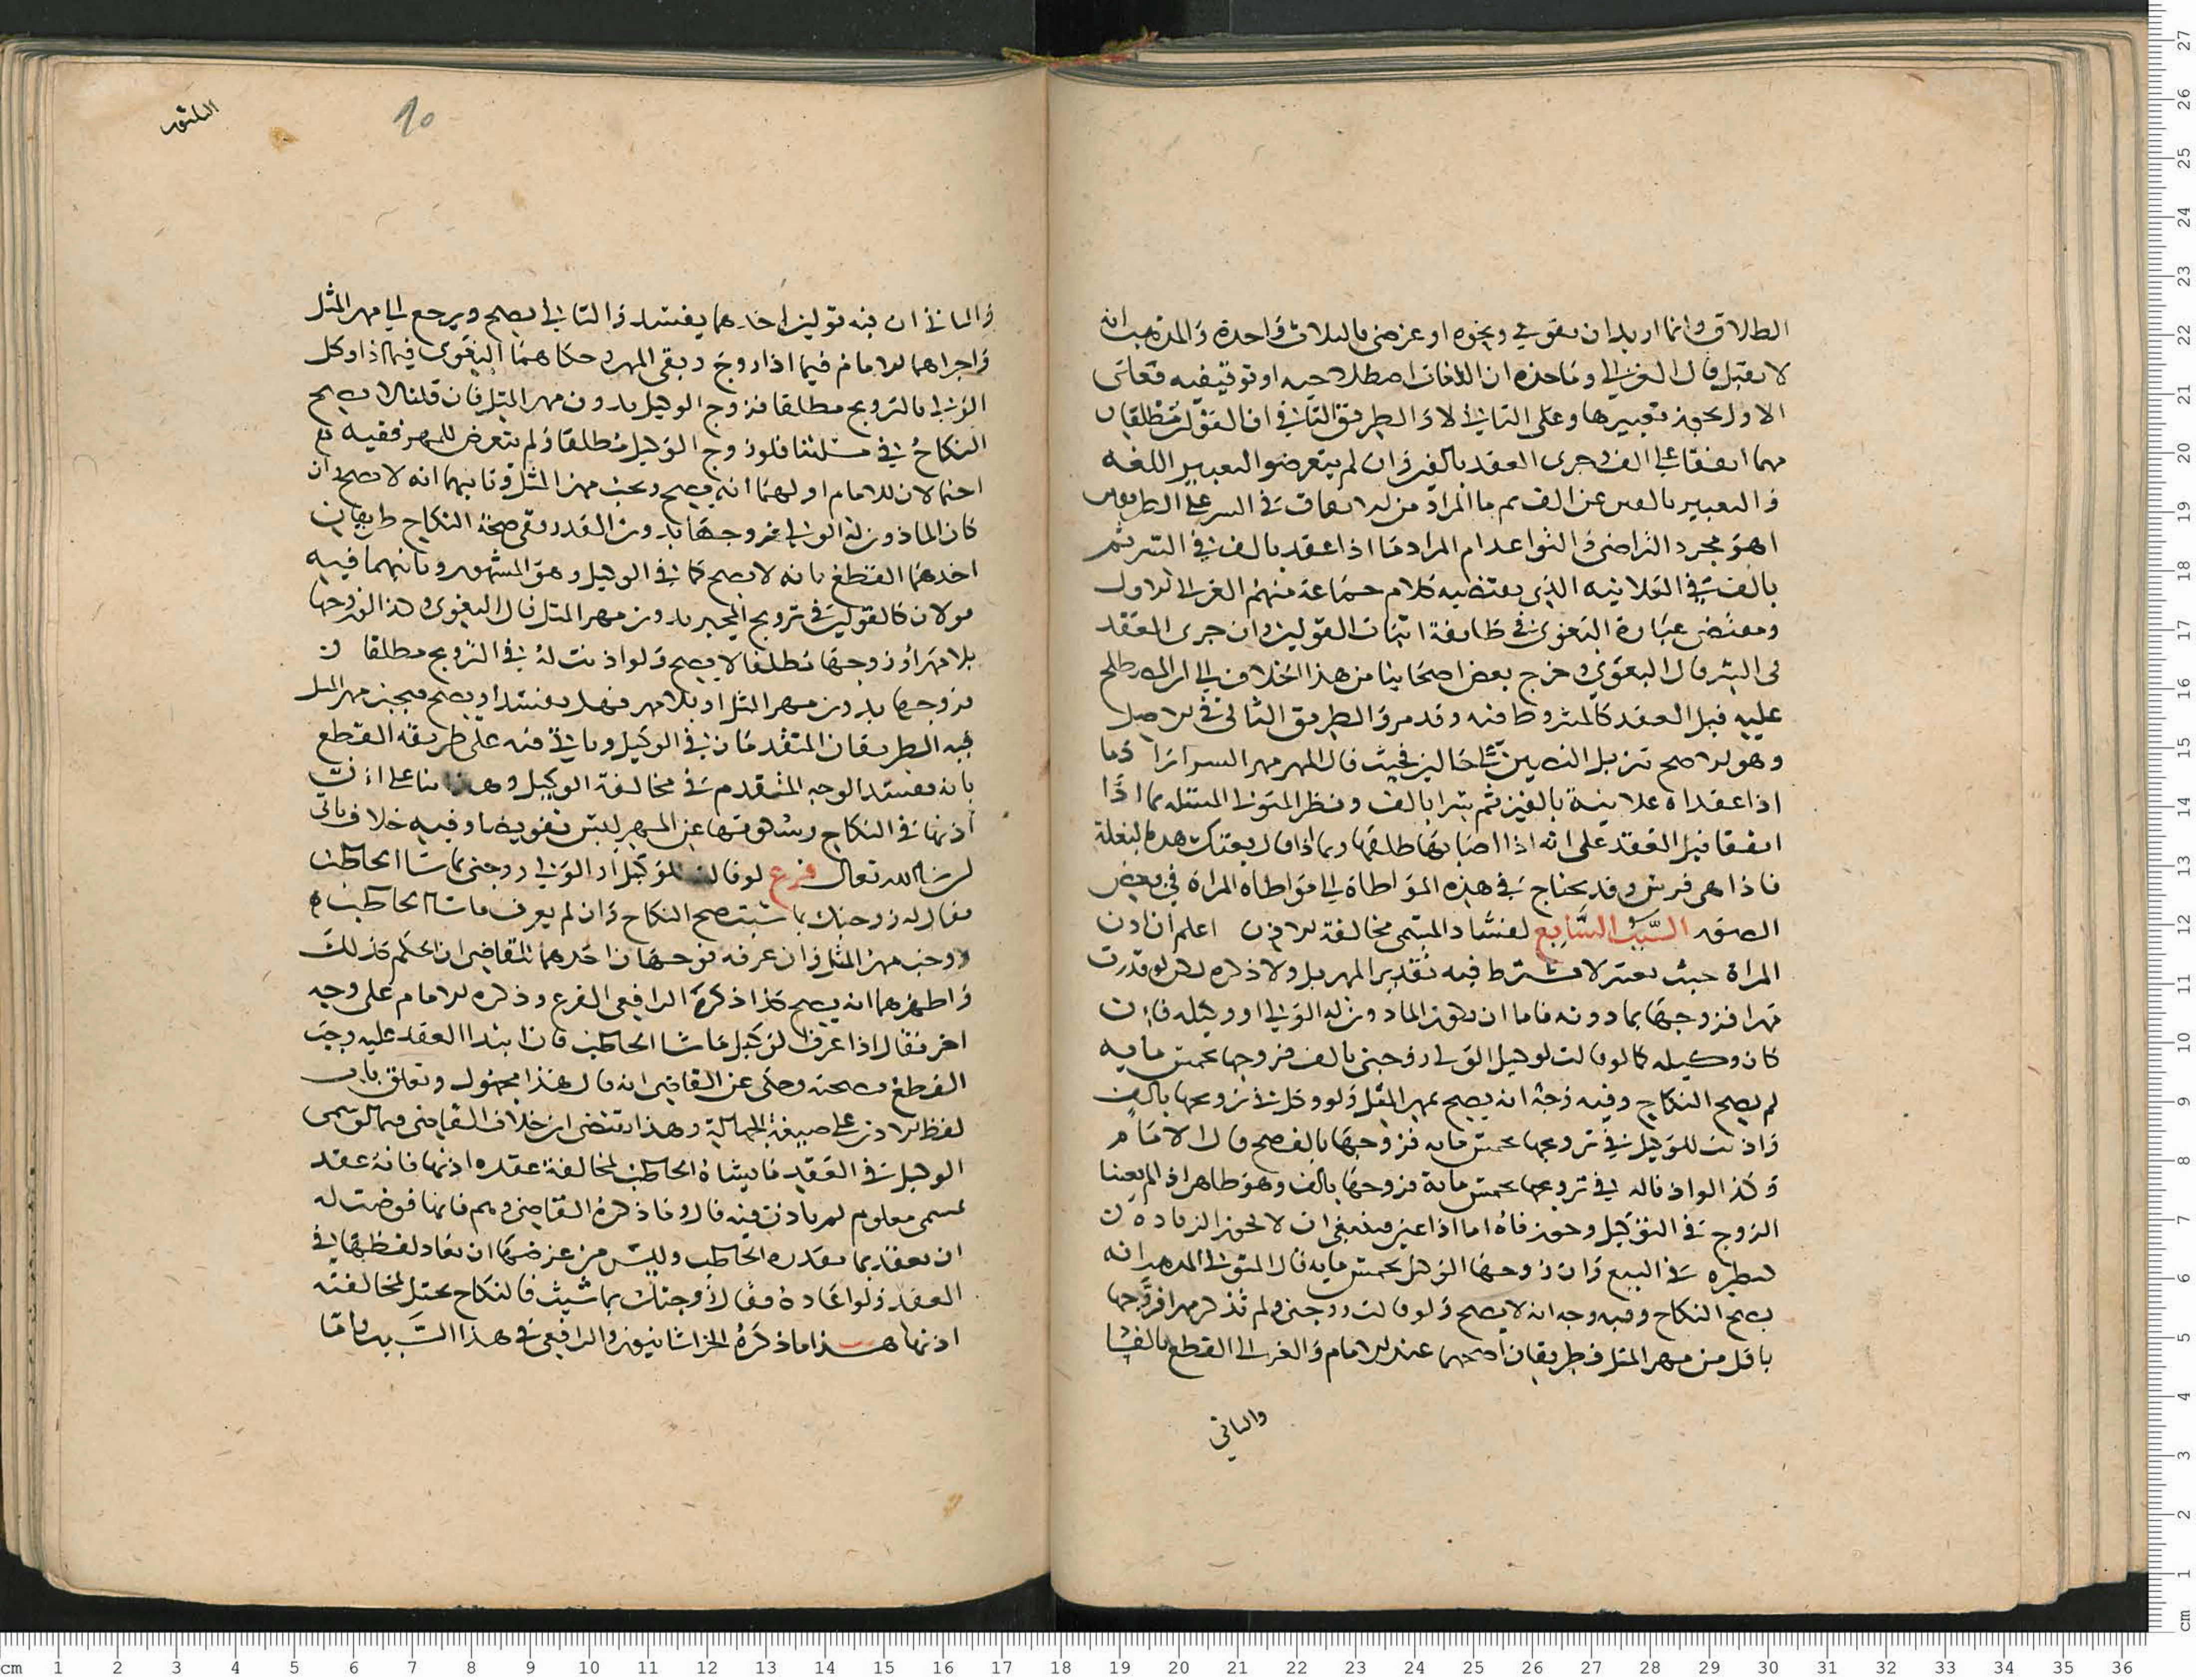 الطلاق وانما اريد ان تقومي ونحوه او غرضي بالثلاث واحدة والمذهب انه
لا يقبل قال الغزالي وماخذه ان اللغات اصطلاحيه او توقيفيه فعلى
الاول يجوز تغييرها وعلى الثاني لا والطريق الثاني ان القولين مطلقان
مهما اتفقا على الف وجرى العقد بالفين وان لم يتعرضوا لتغيير اللغه
والتعبير بالفين عن الف ثم ما المراد من الاتفاق في السر على الطريقين
اهو مجرد التراضي والتواعد ام المراد ما اذا عقد بالف في السر ثم
بالفين في العلانيه الذي يقتضيه كلام جماعة منهم الغزالي الاول
ومقتضى عبارة البغوي في طايفة اثبات القولين وان جرى العقد
في السر قال البغوي وخرج بعض اصحابنا من هذا الخلاف الى ان المصطلح
عليه قبل العقد كالمشروط فيه وقد مر والطريق الثاني في الاصل
وهو الاصح تنزيل النصين على حالين فحيث قال المهر مهر السر اراد ما
اذا عقداه علانية بالفين ثم سرا بالف ونظر المتولي المسئله بما اذا
اتفقا قبل العقد على انه اذا اصابها طلقها وبما اذا قال بعتك هذه البغلة
فاذا هي فرس وقد يحتاج في هذه المواطاة الى مواطاة المراة في بعض
الصور السبب السابع لفساد المسمى مخالفة الاذن اعلم ان اذن
المراة حيث يعتبر لا يشترط فيه تقدير المهر بل ولا ذكره لكن لو قدرت
مهرا فزوجها بما دونه فاما ان يكون الماذون له الولي او وكيله فان
كان وكيله كما لو قالت لوكيل الولي زوجني بالف فزوجها بخمس مايه
لم يصح النكاح وفيه وجه انه يصح بمهر المثل ولو وكل في تزويجها بالف
واذنت للوكيل في تزويجها بخمس مايه فزوجها بالف صح قال الامام
وكذا لو اذن له في تزويجها بخمس ماية فزوجها بالف وهو ظاهر اذا لم يعينا
الزوج في التوكيل وجوز فاه اما اذا عين فينبغي ان لا تجوز الزياده
لنظيره في البيع وان زوجها الوكيل بخمس مايه قال المتولي المذهب انه
يصح النكاح وفيه وجه انه لا يصح ولو قالت زوجني ولم تذكر مهرا فزوجها
باقل من مهر المثل فطريقان اصحهما عند الامام والغزالي القطع بالفساد
والثاني
10
والثاني ان فيه قولين احدهما يفسد والثاني يصح ويرجع الى مهر المثل
واجراهما الامام فيما اذا زوج ونفى المهر وحكاهما البغوي فيما اذا وكل
الولي بالتزويج مطلقا فزوج الوكيل بدون مهر المثل فان قلنا لا يصح
النكاح في مسئلتنا فلو زوج الوكيل مطلقا ولم يتعرض للمهر ففيه
احتمالان للامام اولهما انه يصح ويجب مهر المثل وثانيهما انه لا يصح وان
كان الماذون له الولي فزوجها بدون القدر ففي صحة النكاح طريقان
احدهما القطع بانه لا يصح كما في الوكيل وهو المشهور وثانيهما فيه
قولان كالقولين في تزويج المجبر بدون مهر المثل قال البغوي وكذا لو زوجها
بلا مهر او زوجها مطلقا لا يصح ولو اذنت له في التزويج مطلقا
فزوجها بدون مهر المثل او بلا مهر فهل يفسد او يصح ويجب مهر المثل
فيه الطريقان المتقدمان في الوكيل وياتي فيه على طريقة القطع
بانه يفسد الوجه المتقدم في مخالفة الوكيل وهذا بناء على ان
اذنها في النكاح وسكوتها عن المهر ليس تفويضا وفيه خلاف ياتي
ان شا الله تعالى فرع لو قال للوكيل او الولي زوجني بما شا الخاطب
فقال له زوجتك بما شئت صح النكاح وان لم يعرف ما شا الخاطب
ووجب مهر المثل وان عرفه فوجهان احدهما للقاضي ان الحكم كذلك
واظهرهما انه يصح كذا ذكره الرافعي الفرع وذكره الامام على وجه
اخر فقال اذا عرف الوكيل ما شا الخاطب فان ابتدا العقد عليه وجب
القطع بصحته وحكي عن القاضي انه قال هذا مجهول وتعلق بان
لفظ الاذن على صيغة الجهالة وهذا يقتضي ان خلاف القاضي فيما لو سمى
الوكيل في العقد ما يشاه الخاطب لمخالفة عقده اذنها فانه عقد
بمسمى معلوم لم ياذن فيه قال وما ذكره القاضي وهم فانها فوضت له
ان يعقد بما يقدره الخاطب وليس من غرضها ان يعاد لفظها في
العقد ولو اعاده فقال زوجتك بما شيت فالنكاح يختل لمخالفته
اذنها هذا ما ذكره الخراسانيون والرافعي في هذا السبب واما